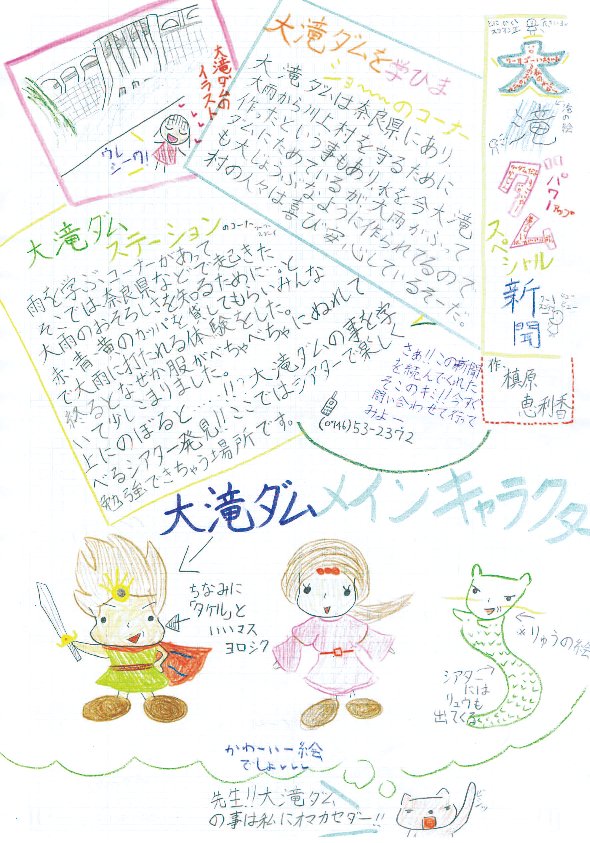 大滝
パワーアップ
スペシャル
新聞
作.
槙原
恵利香
大滝ダムを学びま
ショ〜〜〜のコーナー
大滝ダムは奈良県にあり
大雨から川上村を守るために
作ったという事もあり水を今大滝
ダムにためているが大雨がふって
も大じょうぶなように作られてるので
村の人々は喜び安心しているそーだ。
大滝ダムの
イラスト
ウレ
シーワ!
大滝ダム
ステーション
のコーナー
雨を学ぶコーナーがあって
そこでは奈良県などで起きた
大雨のおそろしいを知るために…と
赤、青、黄のカッパを貸してもらいみんな
で大雨に打たれる体験をした。
終るとなぜか服がべちゃべちゃにぬれて
いて少しこまりました。
上にのぼると……!!?大滝ダムの事を学
べるシアター発見!!ここではシアターで楽しく
勉強できちゃう場所です。
さぁ!!この新聞
を読んでくれた
そこのキミ!!今すぐ
問い合わせて行って
みよー
(0746)53-2372
大滝ダムメインキャラクター
ちなみに
「タケル」と
いいマス
ヨロシク
×りゅうの絵
シアター
には
リュウも
出てくる
かわーいー絵
でしょ
先生!!大滝ダム
の事は私にオマカセダー!!